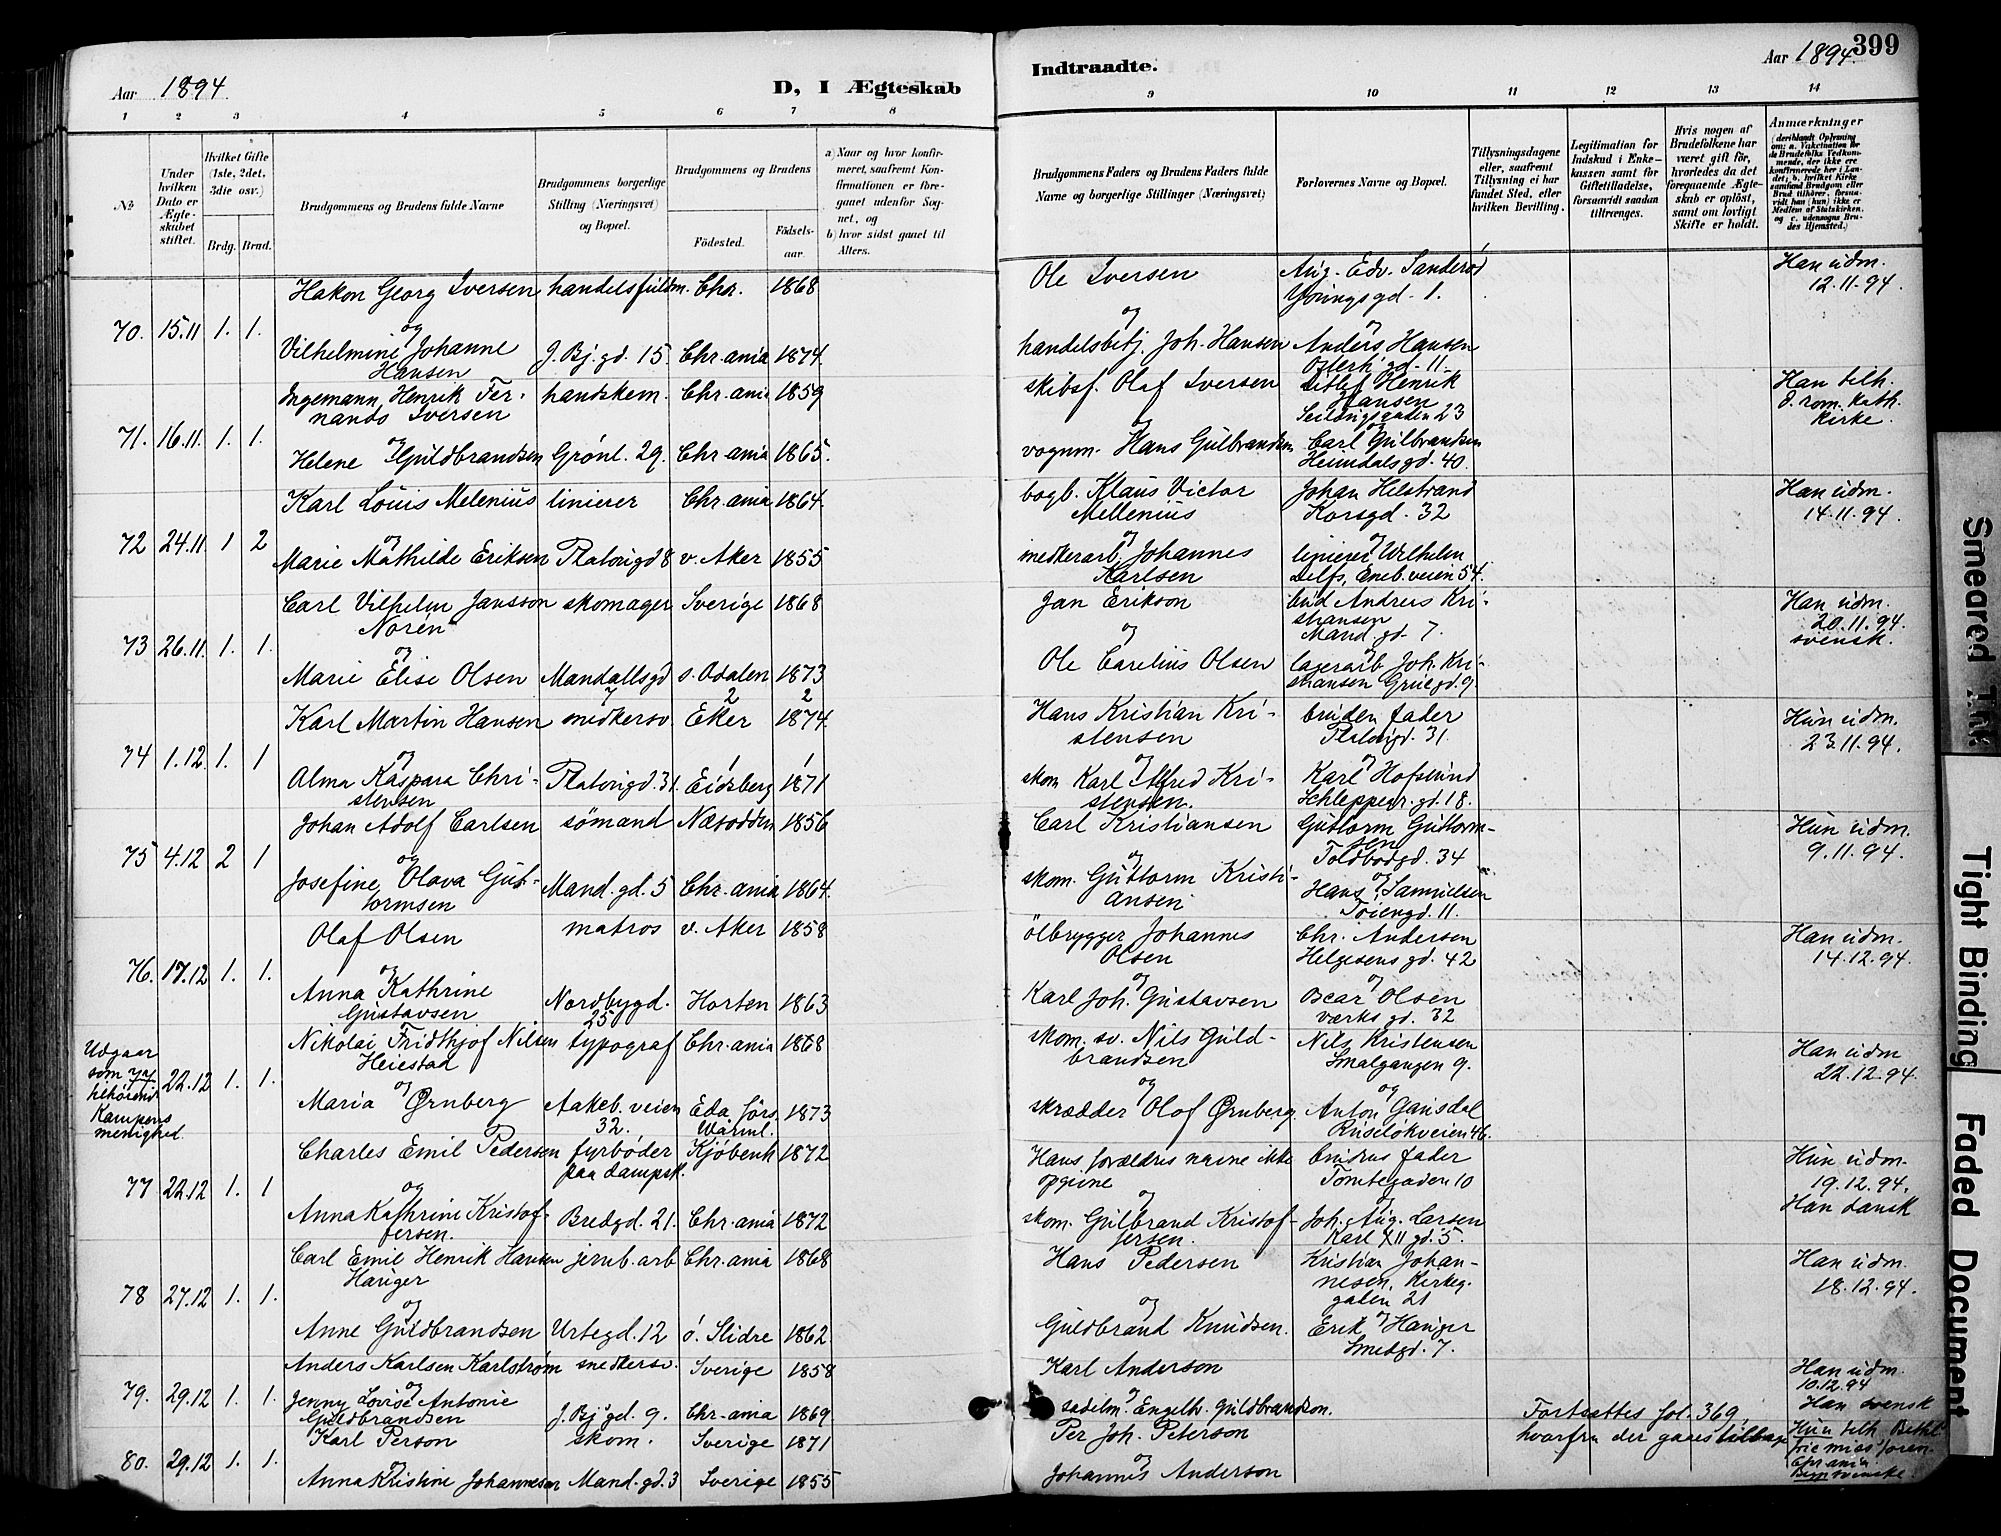 Aar 1894
D, I Ægteskab
Indtraadte.
Aar 1894.
399
1 2 3 4 5 6 7 8 9 10 11 12 13 14
№
Under hvilken Dato er Ægteskabet stiftet.
Hvilket Gifte (1ste, 2det, 3dte osv.)
Brdg. Brud.
Brudgommens og Brudens fulde Navne
Brudgommens borgerlige Stilling (Næringsvei) og Bopæl.
Brudgommens og Brudens
Födested.
Födsels-aar.
a) Naar og hvor konfirmeret, saafremt Konfirmationen er foregaaet udenfor Sognet, og
b) hvor sidst gaaet til Alters.
Brudgommens Faders og Brudens Faders fulde Navne og borgerlige Stillinger (Næringsvei)
Forlovernes Navne og Bopæl.
Tillysningsdagene eller, saafremt Tillysning ei har fundet Sted, efter hvilken Bevilling.
Legitimation for Indskud i Enkekassen samt for Giftetilladelse, forsaavidt saadan tiltrænges.
Hvis nogen af Brudefolkene har været gift för, hvorledes da det foregaaende Ægteskab er oplöst, samt om lovligt Skifte er holdt.
Anmærkninger
(deriblandt Oplysning om: a. Vakcination for de Brudefolks Vedkommende, der ikke ere konfirmerede her i Landet, b. hvilket Kirkesamfund Brudgom eller Brud tilhörer, forsaavidt han (hun) ikke er Medlem af Statskirken, og c. udensogns Brudes Hjemsted.)
70. 15.11 1. 1.
Hakon Georg Iversen handelsfuldm. Chra. 1868
Ole Iversen Aug. Edv. Sanderød
Youngsgd. 1.
Han udm.
12.11.94.
og
Vilhelmine Johanne
Hansen
J. Bj. gd. 15. Chr.ania 1874.
og
handelsbetj. Joh. Hansen
og
Anders Hansen
Osterh. gd. 11.
71. 16.11. 1. 1.
Ingemann Henrik Fer-
nando Iversen
handskem. Chr.ania 1859
skibsf. Olaf Iversen
Ditlef Henrik
Hansen
Seildugsgaden 23
Han tilh.
d. rom. kath.
kirke.
og
Helene Guldbrandsen Grønl. 29. Chr.ania 1865.
og
vognm. Hans Gulbrandsen
og
Carl Gulbrandsen
Heimdalsgd. 40.
72 24.11 1 2
Karl Louis Melenius linierer Chr.ania 1864.
bogb. Klaus Victor
Mellenius
Johan Hilstrand
Korsgd. 32
Han udm.
14.11.94.
og
Marie Mathilde Eriksen Platousgd 8 v. Aker 1855
og
snedkerarb. Johannes
Karlsen
og
linierer Wilhelm
Delfs, Eneb.veien 54.
73 26.11. 1. 1.
Carl Vilhelm Jansson
Norén
skomager Sverige 1868
Jan Erikson
bud Andreas Kri-
stiansen
Mand. gd. 7.
Han udm.
20.11.94.
svensk.
og
Marie Elise Olsen Mandallsgd
7
s. Odalen 1873
og
Ole Carelius Olsen
og
lagerarb. Joh. Kri-
stiansen Gruegd. 9.
74 1.12. 1. 1
Karl Martin Hansen snedkersv.
2
Eker
2
1874.
Hans Kristian Kri-
stensen
brudens fader
Platousgd. 31.
Hun udm.
23.11.94.
og
Alma Kaspara Chri-
stensen
Platousgd. 31.
1
Eidsberg
1
1871
og
skom. Karl Alfred Kri-
stensen.
og
Karl Hofslund
Schleppegr. gd. 18.
75 4.12 2 1
Johan Adolf Carlsen sømand Næsodden 1856
Carl Kristiansen
Guttorm Guttorm-
sen
Toldbodgd. 34
Hun udm.
9.11.94.
og
Josefine Olava Gut-
tormsen
Mand. gd. 5 Chr.ania 1864.
og
skom. Guttorm Kristi-
ansen.
og
Hans Samuelsen
Tøiengd. 11.
76. 17.12 1. 1.
Olaf Olsen matros v. Aker 1858
ölbrygger Johannes
Olsen
Chr. Andersen
Helgesensgd. 42
Han udm.
14.12.94.
og
Anna Kathrine
Gustavsen
Nordbygd.
25
Horten 1863
og
Karl Joh. Gustavsen
og
Oscar Olsen
Værksgd. 32
Udgaar
som 77
tilhørende
Kampens
menighed.
22.12 1. 1.
Nikolai Fridthjof Nilsen
Heiestad
typograf Chr.ania 1868
skom. sv. Nils Guld-
brandsen
Nils Kristensen
Smalgangen 9.
Han udm
22.12.94.
og
Maria Ørnberg Aakeb. veien
32.
Eda förs.
Wärml.
1873
og
skrædder Olof Ørnberg.
og
Anton Gausdal
Ruseløkveien 46.
77 22.12 1. 1
Charles Emil Pedersen fyrbøder
paa dampsk.
Kjøbenh 1872
Hans forældres navne ikke
opgivne
brudens fader
Tomtegaden 10
Hun udm.
19.12.94.
Han dansk
og
Anna Kathrine Kristof-
fersen.
Bredgd. 21. Chr.ania 1872
og
skom. Gulbrand Kristof-
fersen.
og
Joh. Aug. Larsen
Karl XII gd. 5.
78 27.12 1. 1.
Carl Emil Henrik Hansen
Hauger
jernb. arb Chr.ania 1868
Hans Pedersen
Kristian Johan-
nesen, Kirkeg-
gaden 21
Han udm.
18.12.94.
og
Anne Guldbrandsen Urtegd. 12 ö. Slidre 1862
og
Guldbrand Knudsen.
og
Erik Hauger
Smedgd. 7.
79. 29.12 1. 1.
Anders Karlsen Karlstrøm snedkersv. Sverige 1858
Karl Anderson
Han udm.
10.12.94
Han svensk
og
Jenny Lovise Antonie
Guldbrandsen
J. Bj. gd. 9. Chr.ania 1869
og
sadelm. Engelh. Guldbrandsen.
80. 29.12 1. 1.
Karl Person skom. Sverige 1871
Per Joh. Peterson
Fortsættes fol. 369,
hvorfra der gaaes tilbage
Hun tilh. Bethl.
frie miss. foren.
Chr.ania
Begge svenske.
og
Anna Kristine Johannesen Mand. gd. 3 Sverige 1855
og
Johannes Anderson
Smeared Ink
Tight Binding
Faded Document